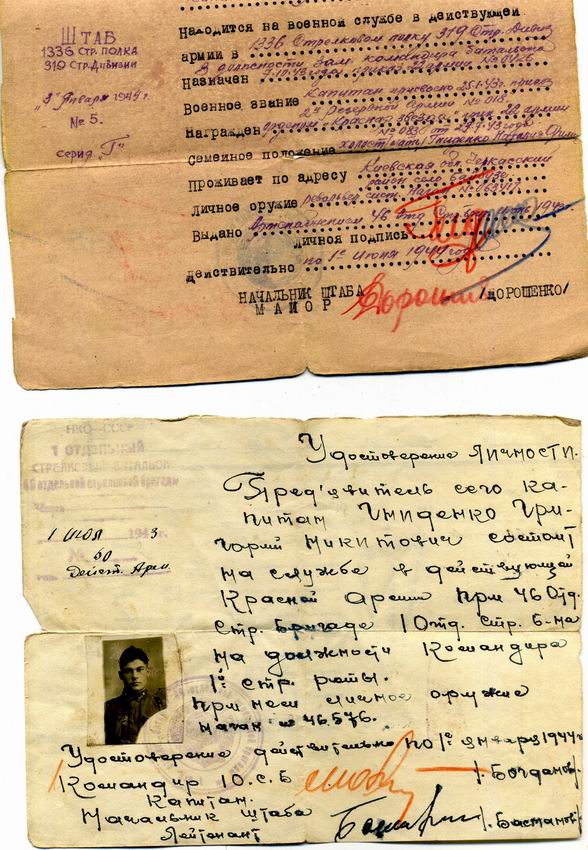 ШТАБ
1336 СТР. ПОЛКА
319 СТР. ДИВИЗИИ
"3" Января 1944 г.
№ 5.
серия "Г"
Находится на военной службе в действующей
армии в 1336 Стрелковом полку 319 Стр. Дивиз
В должности Зам. командира батальона
Назначен
Военное звание Капитан присвоено 25.1.43г. приказ
2й резервной армии № 018
Награжден орденом Красная звезда
Семейное положение холост, мать Гниденко Наталия
Проживает по адресу Киевская обл. Черкасский
район село
Личное оружие револьвер сист. Наган
Выдано
личная подпись
Действительно по 1е Июня 1944 года
НАЧАЛЬНИК ШТАБА
МАЙОР /ДОРОШЕНКО/
НКО-СССР
1 ОТДЕЛЬНЫЙ
СТРЕЛКОВЫЙ БАТАЛЬОН
46 отдельной стрелковой бригады
1 июля 1943
№ 60
Дейст. Арм.
Удостоверение личности.
Пред'явитель сего ка-
питан Гниденко Гри-
горий Никитович состоит
на службе в действующей
Красной армии при 46 Отд.
стр. Бригаде 1 Отд. Стр. Б-на
на должности Командира
1й стр. роты.
При нем личное оружие
наган № 46576.
Удостоверение действительно по 1е января 1944 г.
Командир 1 О.С.Б
Капитан. /. Богданов/.
Начальник штаба
Лейтенант /. Басманов/.